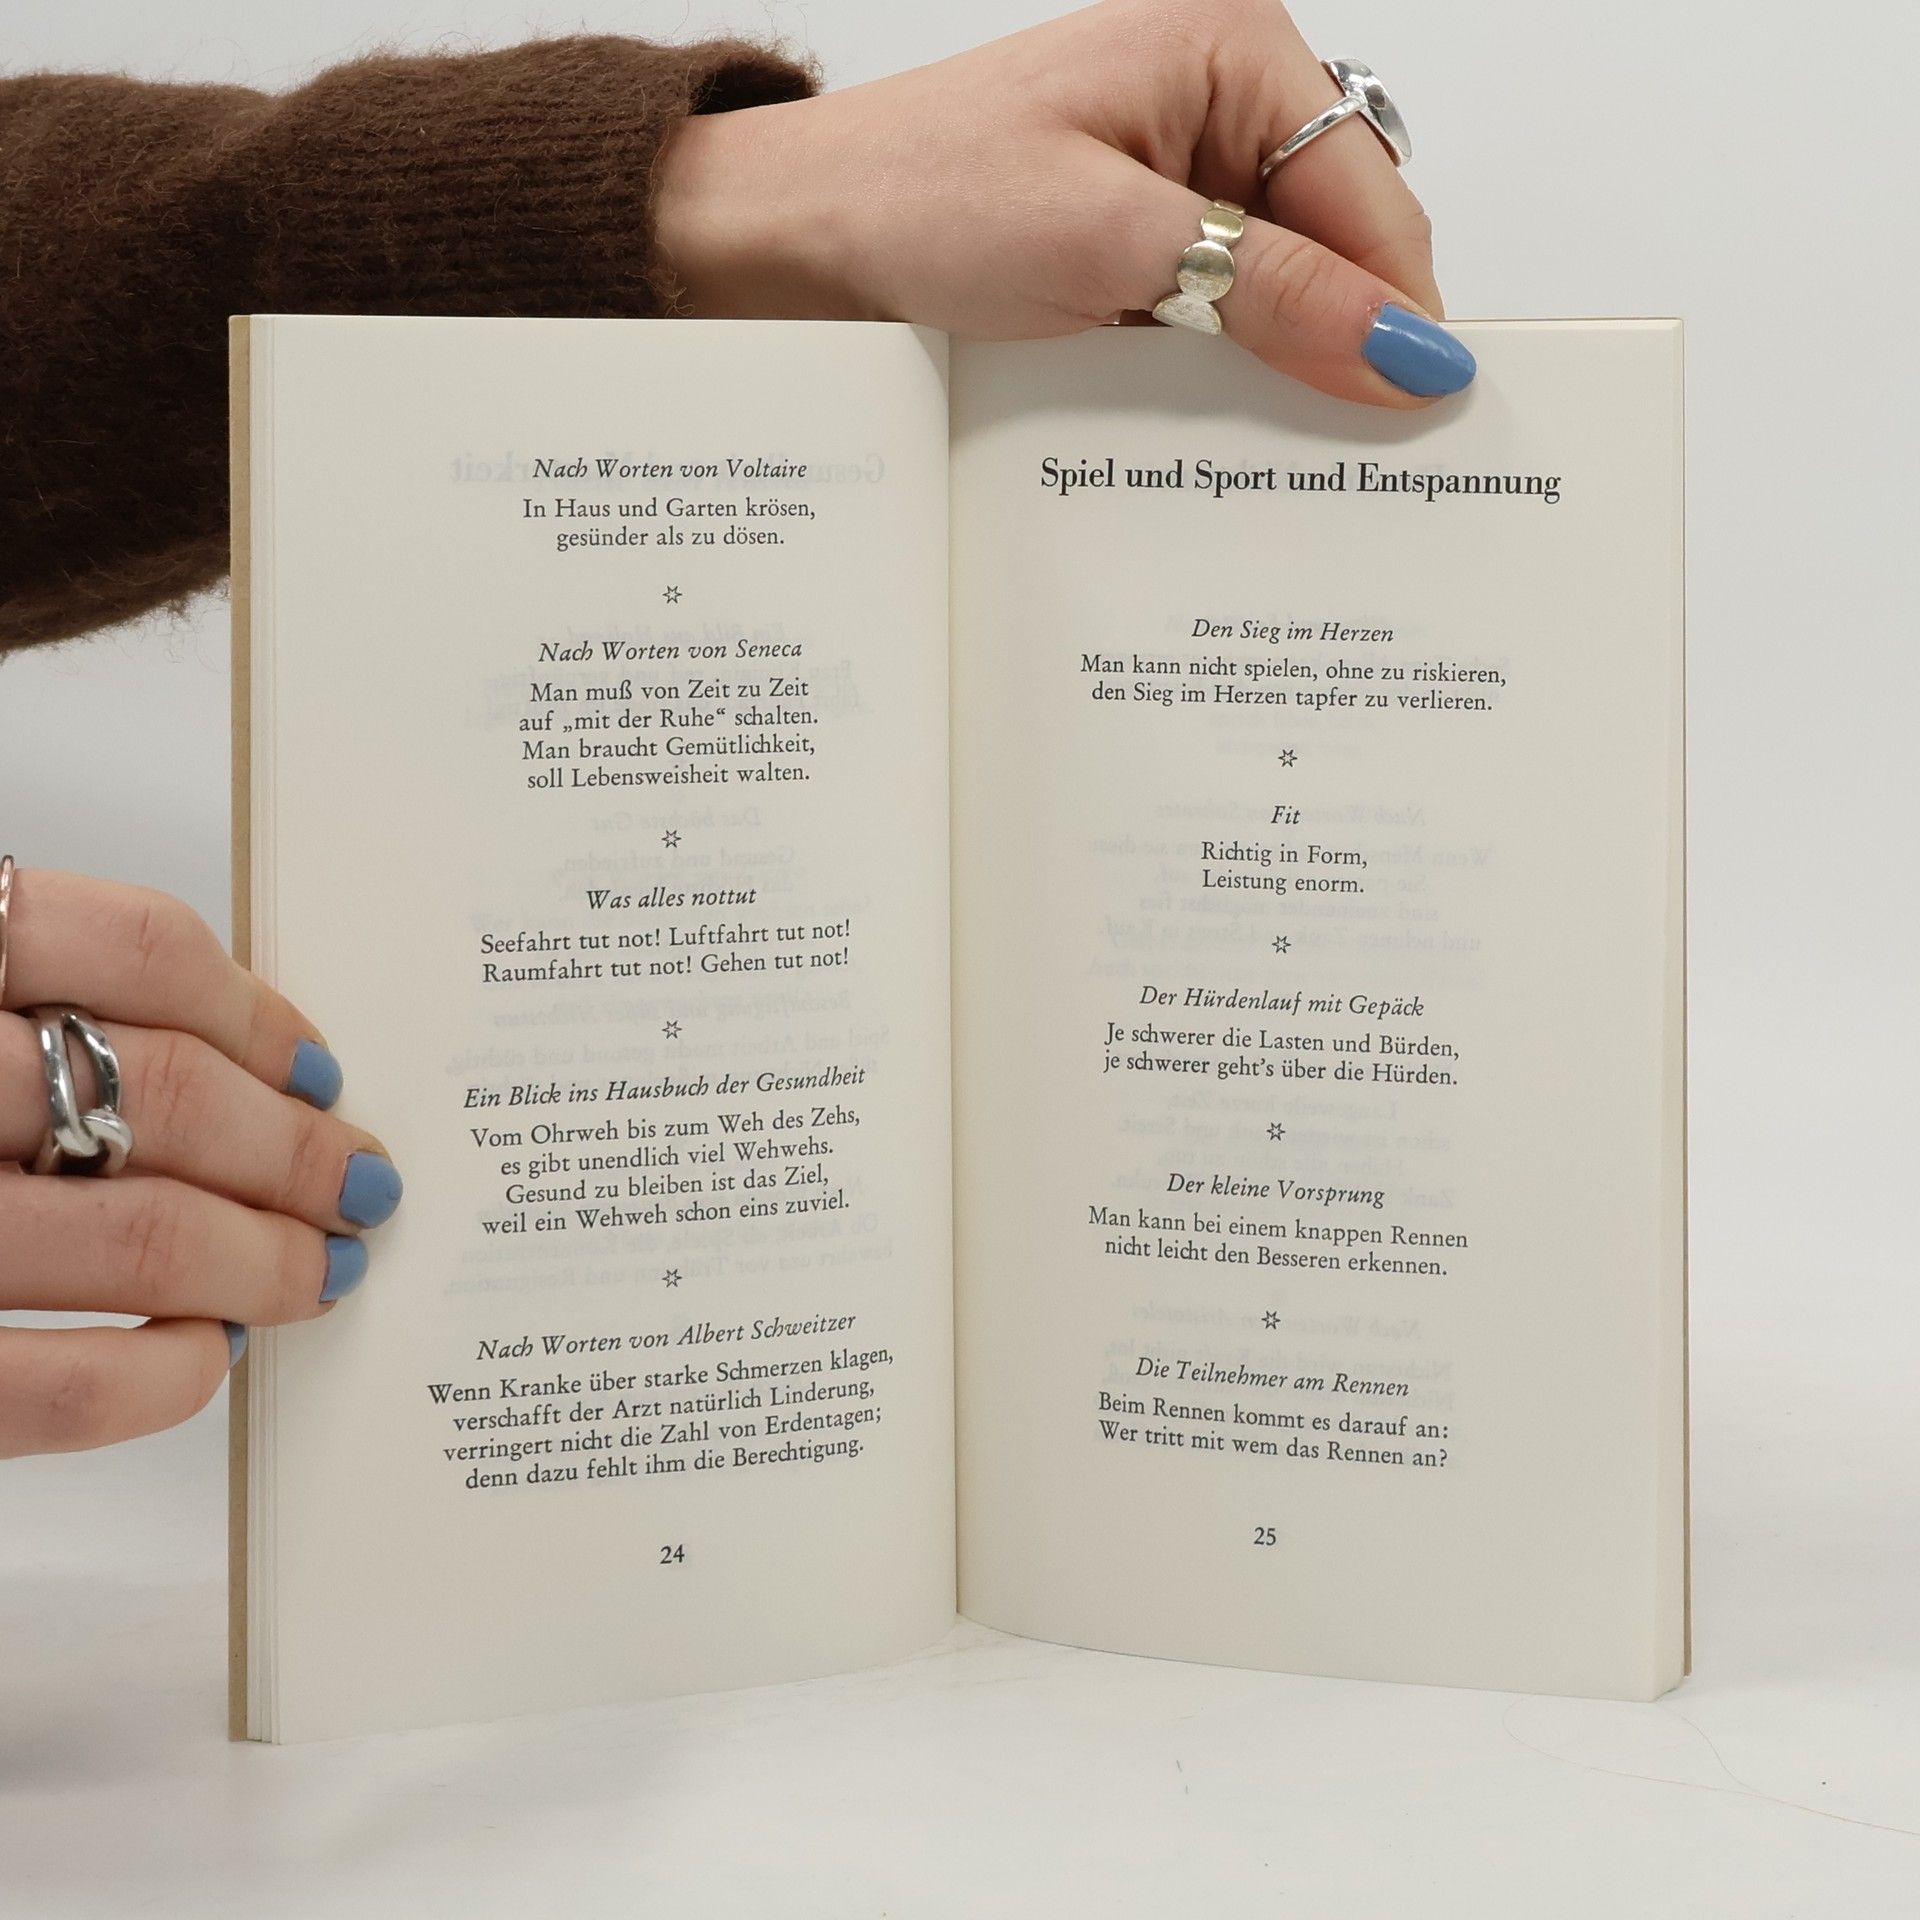 Nach Worten von Voltaire
In Haus und Garten krösen,
gesünder als zu dösen.
Nach Worten von Seneca
Man muß von Zeit zu Zeit
auf „mit der Ruhe“ schalten.
Man braucht Gemütlichkeit,
soll Lebensweisheit walten.
Was alles nottut
Seefahrt tut not! Luftfahrt tut not!
Raumfahrt tut not! Gehen tut not!
Ein Blick ins Hausbuch der Gesundheit
Vom Ohrweh bis zum Weh des Zehs,
es gibt unendlich viel Wehwehs.
Gesund zu bleiben ist das Ziel,
weil ein Wehweh schon eins zuviel.
Nach Worten von Albert Schweitzer
Wenn Kranke über starke Schmerzen klagen,
verschafft der Arzt natürlich Linderung,
verringert nicht die Zahl von Erdentagen;
denn dazu fehlt ihm die Berechtigung.
24
Spiel und Sport und Entspannung
Den Sieg im Herzen
Man kann nicht spielen, ohne zu riskieren,
den Sieg im Herzen tapfer zu verlieren.
Fit
Richtig in Form,
Leistung enorm.
Der Hürdenlauf mit Gepäck
Je schwerer die Lasten und Bürden,
je schwerer geht's über die Hürden.
Der kleine Vorsprung
Man kann bei einem knappen Rennen
nicht leicht den Besseren erkennen.
Die Teilnehmer am Rennen
Beim Rennen kommt es darauf an:
Wer tritt mit wem das Rennen an?
25